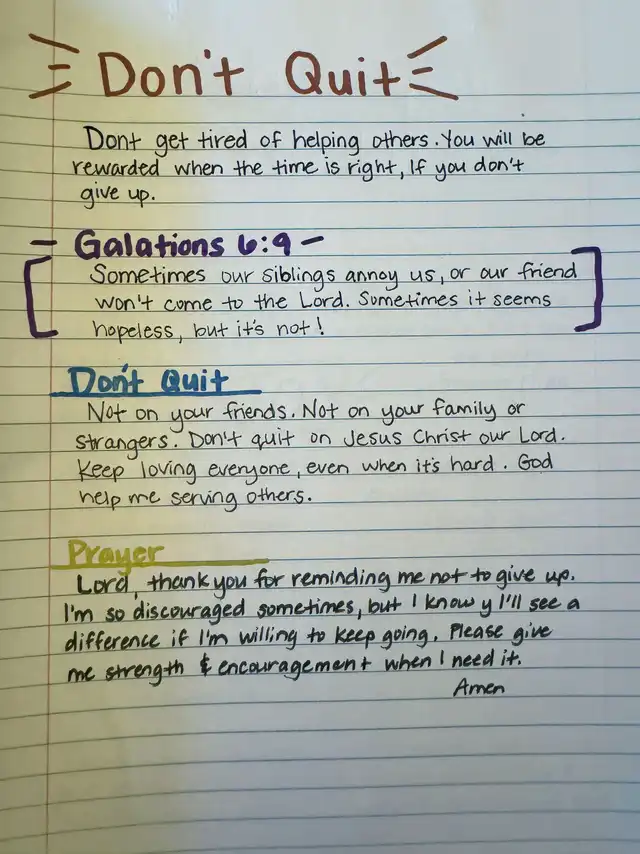 Don't Quit
Dont get tired of helping others. You will be
rewarded when the time is right, If you don't
give up.
- Galations 6:9 -
Sometimes our siblings annoy us, or our friend
won't come to the Lord. Sometimes it seems
hopeless, but it's not!
Don't Quit
Not on your friends. Not on your family or
strangers. Don't quit on Jesus Christ our Lord.
Keep loving everyone, even when it's hard. God
help me serving others.
Prayer
Lord, thank you for reminding me not to give up.
I'm so discouraged sometimes, but I know y I'll see a
difference if I'm willing to keep going. Please give
me strength & encouragement when I need it.
Amen